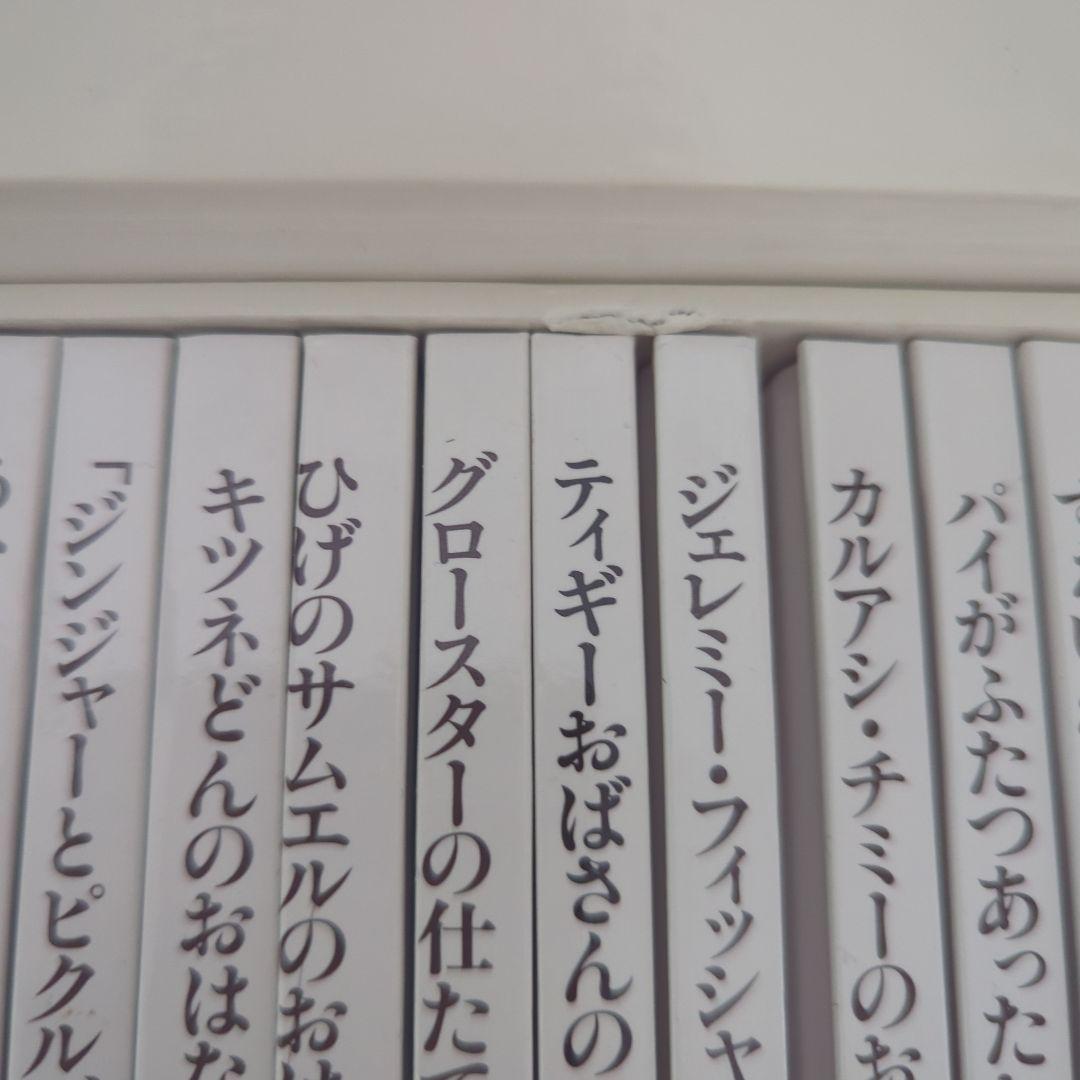 パイがふたつあった
カルアシ・チミーのお
ジェレミー・フィッシャ
ティギーおばさんの
グロースターの仕た
ひげのサムエルのお
キツネどんのおはな
「ジンジャーとピクル